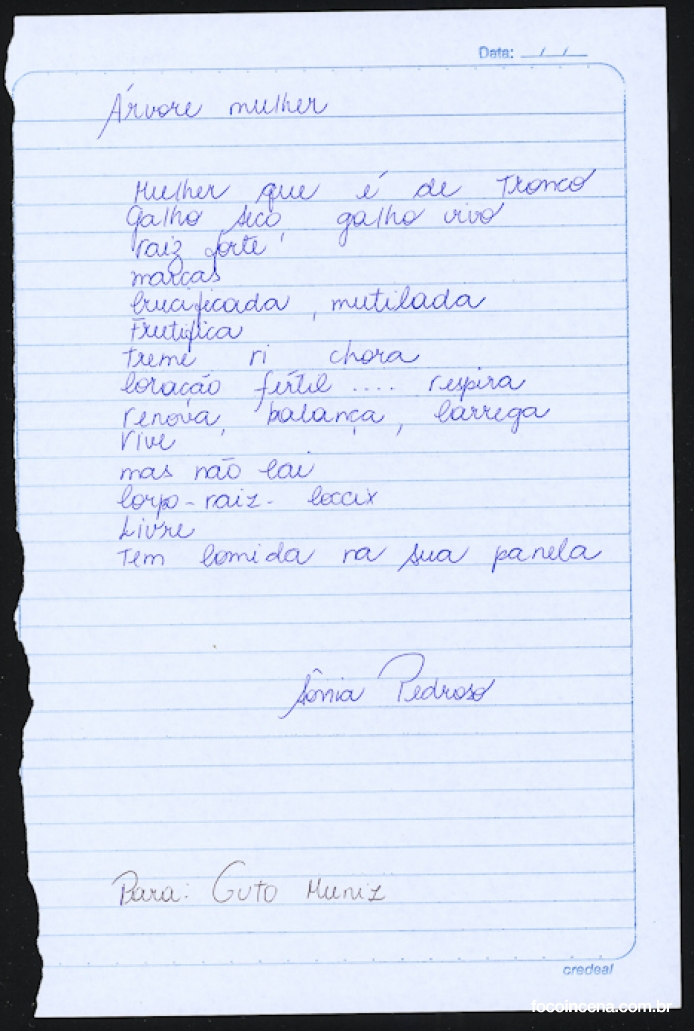 Data: __/__/__
Árvore mulher
Mulher que é de Tronco
Galho seco, galho vivo
raiz forte,
marcas
Crucificada, mutilada
Frutifica
Treme ri chora
Coração fértil .... respira
renova, balança, Carrega
Vive
mas não Cai
Corpo - raiz - Coccix
Livre
Tem Comida na sua panela
Sônia Pedroso
Para: Guto Muniz
credeal
focoincena.com.br